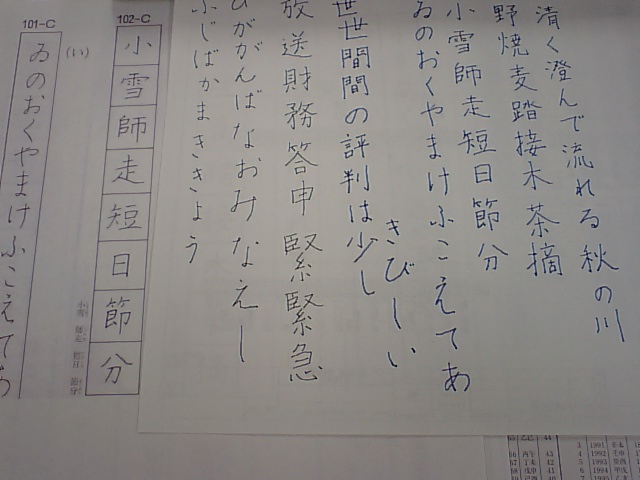 清く澄んで流れる秋の川
野焼麦踏接木茶摘
小雪師走短日節分
ゐのおくやまけふこえてあ
きびしい
世世間間の評判は少し
放送財務答申緊緊急
ひががんばなおみなえし
ふじばかまききょう
102-C
小雪師走短日節分
小雪 師走 短日 節分
(い)
101-C
ゐのおくやまけふこえてあ